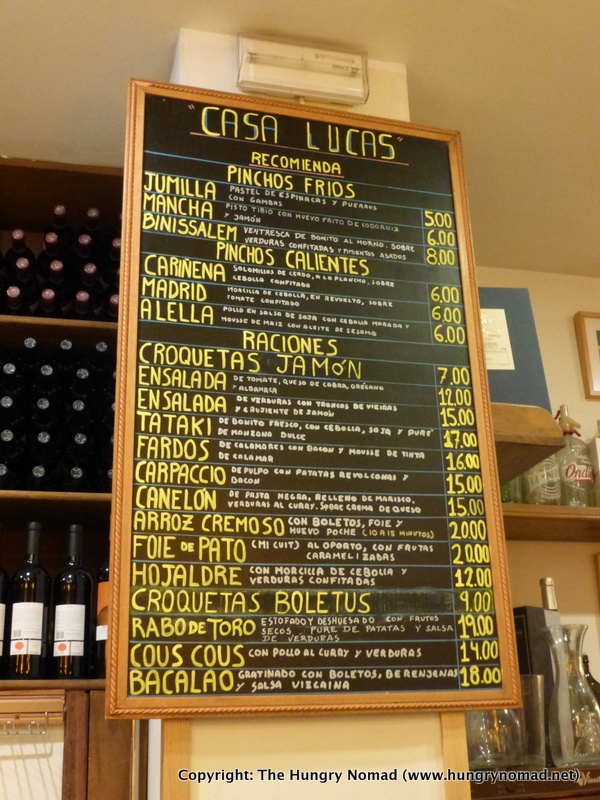 "CASA LUCAS"
RECOMIENDA
PINCHOS FRIOS
JUMILLA PASTEL DE ESPINACAS Y PUERROS CON GAMBAS 5.00
MANCHA PISTO TIBIO CON HUEVO FRITO DE CODORNIZ Y JAMÓN 6.00
BINISSALEM VENTRESCA DE BONITO AL HORNO. SOBRE VERDURAS CONFITADAS Y PIMIENTOS ASADOS 8.00
PINCHOS CALIENTES
CARIÑENA SOLOMILLOS DE CERDO, A LA PLANCHA, SOBRE CEBOLLA CONFITADA 6.00
MADRID MORCILLA DE CEBOLLA, EN REVUELTO, SOBRE TOMATE CONFITADO 6.00
ALELLA POLLO EN SALSA DE SOJA CON CEBOLLA MORADA Y MOUSSE DE MAIZ CON ACEITE DE SESAMO 6.00
RACIONES
CROQUETAS JAMÓN 7.00
ENSALADA DE TOMATE, QUESO DE CABRA, OREGANO Y ALBAHACA 12.00
ENSALADA DE VERDURAS CON TRONCOS DE VIEIRAS Y CRUJIENTE DE JAMÓN 15.00
TATAKI DE BONITO FRESCO, CON CEBOLLA, SOJA Y PURÉ DE MANZANA DULCE 17.00
FARDOS DE CALAMARES CON BACON Y MOUSSE DE TINTA DE CALAMAR 16.00
CARPACCIO DE PULPO CON PATATAS REVOLCONAS Y BACON 15.00
CANELÓN DE PASTA NEGRA, RELLENO DE MARISCO, VERDURAS AL CURRY. SOBRE CREMA DE QUESO 15.00
ARROZ CREMOSO CON BOLETOS, FOIE Y HUEVO POCHE (10 A 15 MINUTOS) 20.00
FOIE DE PATO (MI CUIT) AL OPORTO, CON FRUTAS CARAMELIZADAS 20.00
HOJALDRE CON MORCILLA DE CEBOLLA Y VERDURAS CONFITADAS 12.00
CROQUETAS BOLETUS 9.00
RABO DE TORO ESTOFADO Y DESHUESADO CON FRUTOS SECOS PURE DE PATATAS Y SALSA DE VERDURAS 19.00
COUS COUS CON POLLO AL CURRY Y VERDURAS 14.00
BACALAO GRATINADO CON BOLETOS, BERENJENAS Y SALSA VIZCAINA 18.00
Copyright: The Hungry Nomad (www.hungrynomad.net)